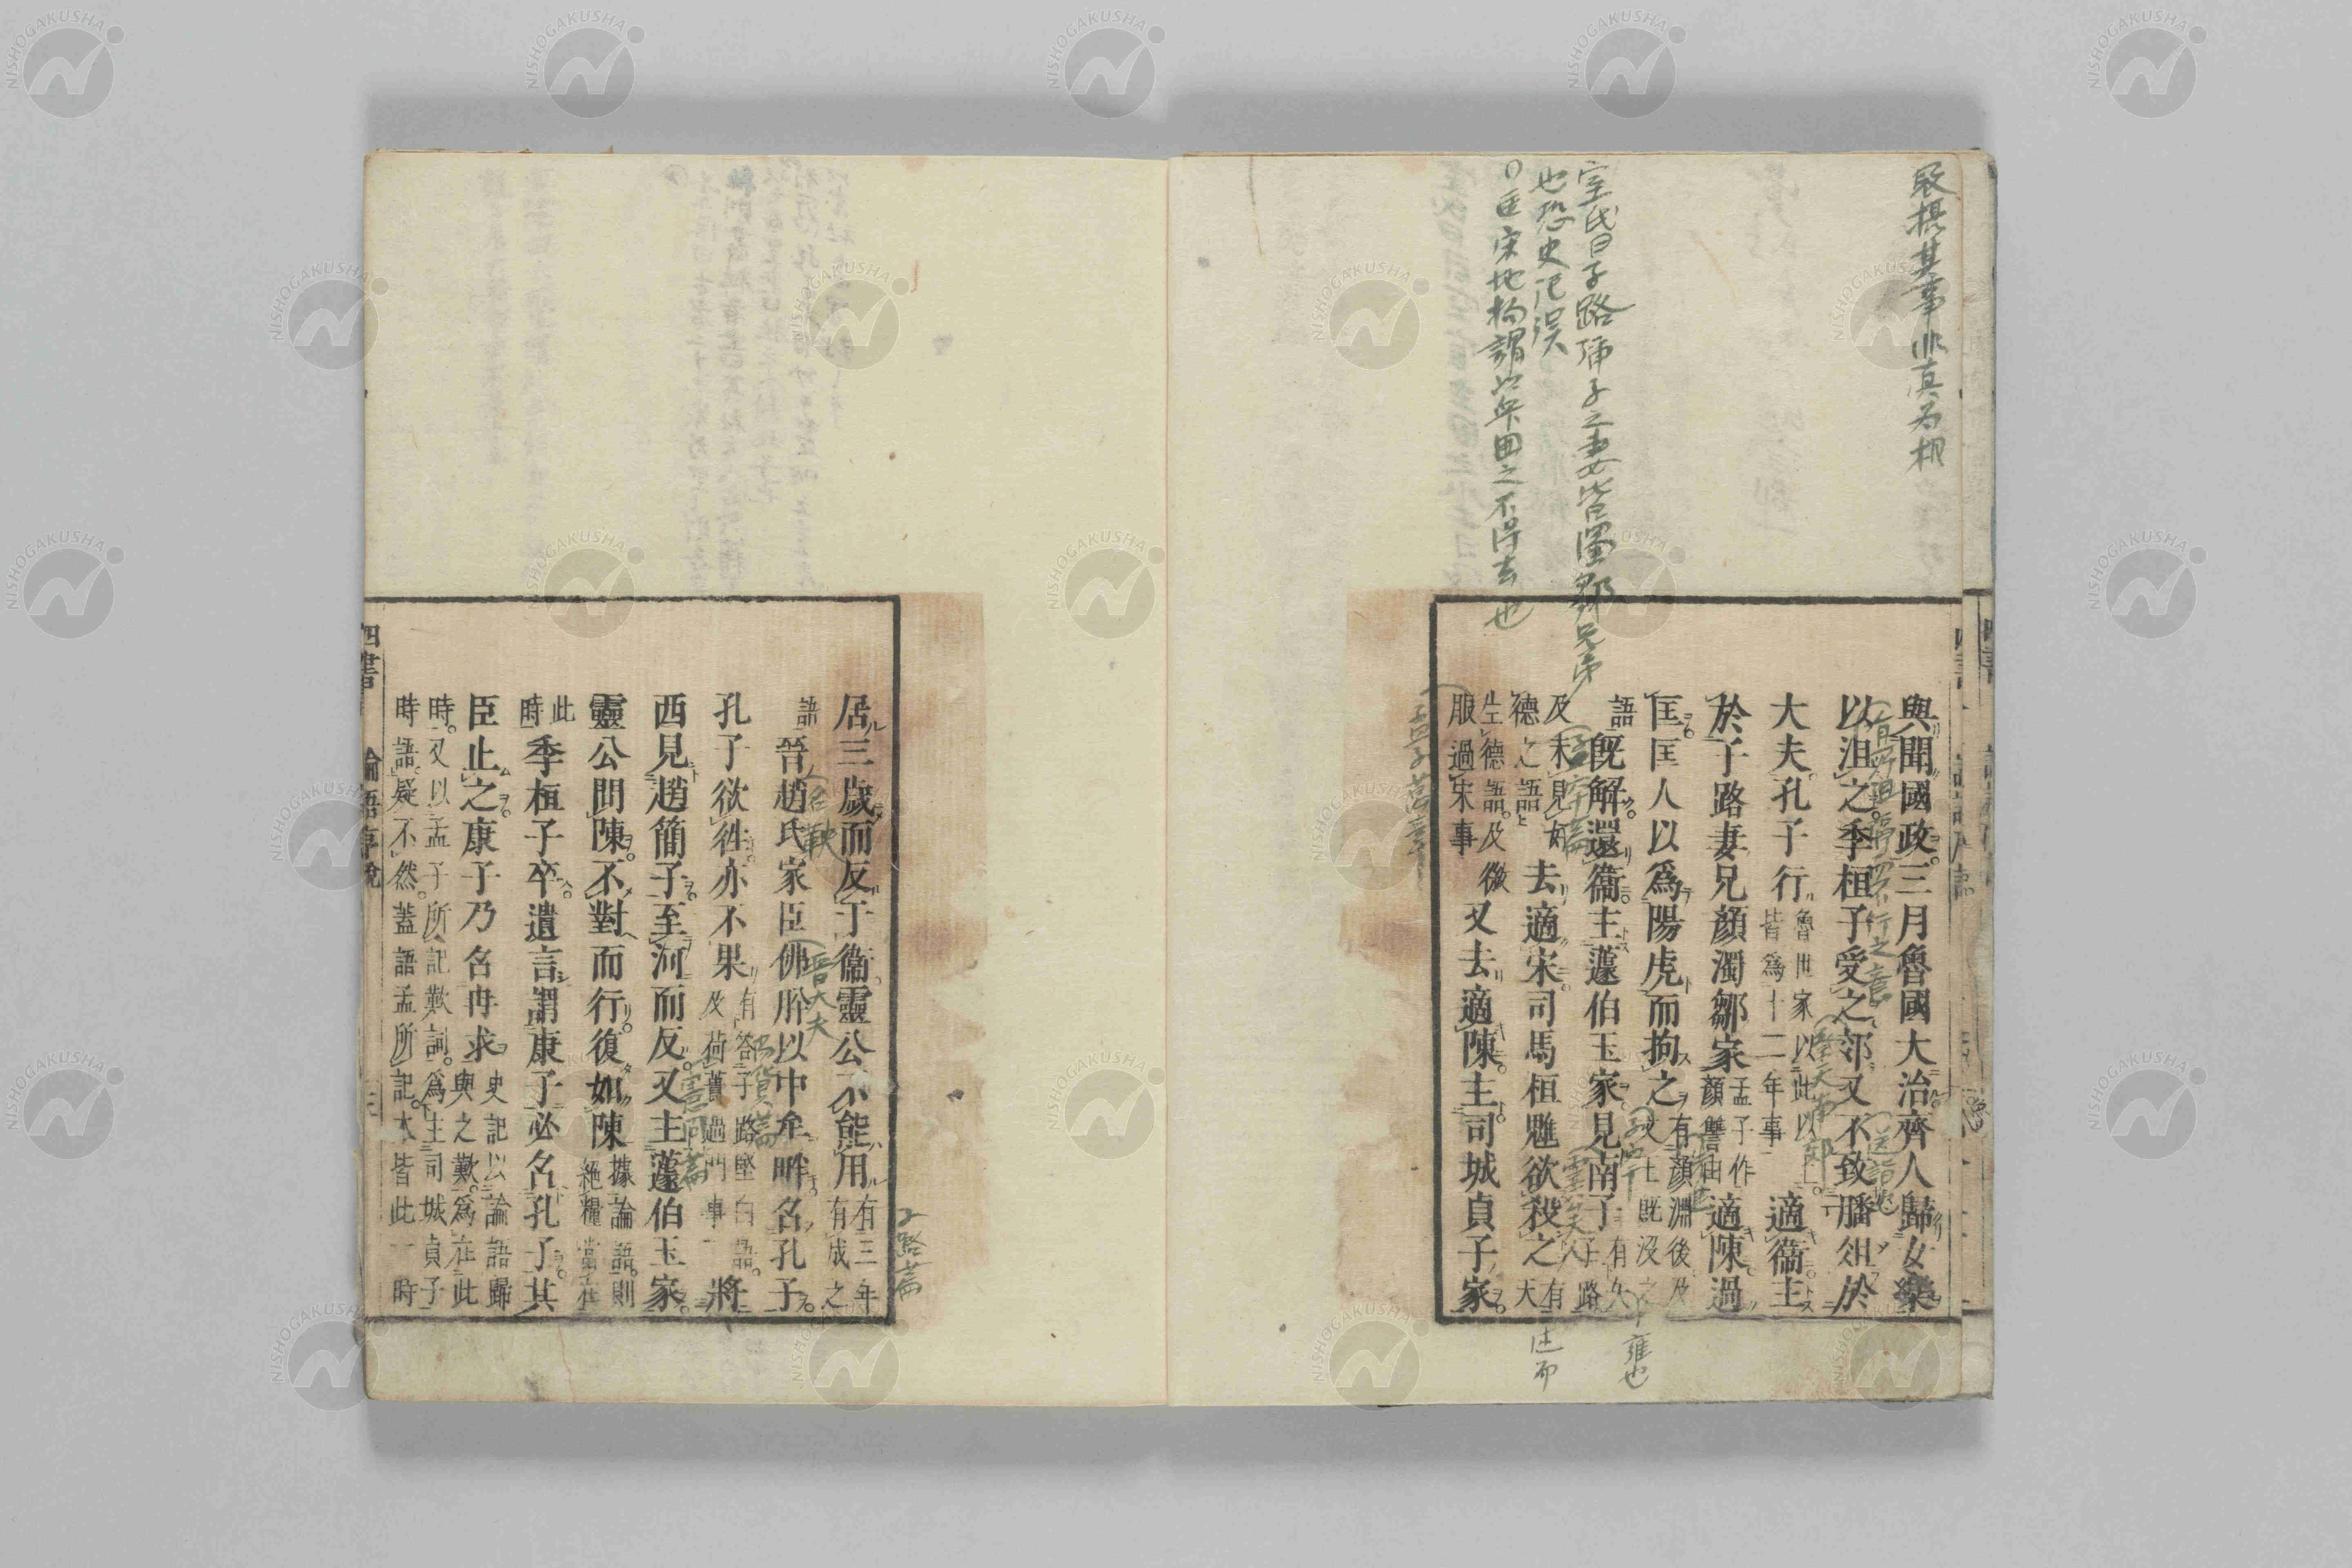 與聞國政三月魯國大治齊人歸女樂
以沮之季桓子受之郊又不致膰俎於
大夫孔子行
魯世家以此以上
皆爲十二年事
適衞主
於子路妻兄顏濁鄒家
孟子作
顏讐由
適陳過
匡匡人以爲陽虎而拘之
有顏淵後及
文王既沒之
語
既解還衞主蘧伯玉家見南子
有矢
子路
及未見好
德之語
去適宋司馬桓魋欲殺之
有天
生德語及微
服過宋事
又去適陳主司城貞子家
居三歲而反于衞靈公不能用
有三年
有成之
語
晉趙氏家臣佛肸以中牟畔名孔子
孔子欲往亦不果
有答子路堅白語
及荷蕢過門事
將
西見趙簡子至河而反又主蘧伯玉家
靈公問陳不對而行復如陳
據論語則
絶糧當在
此
時
季桓子卒遺言謂康子必名孔子其
臣止之康子乃名冉求
史記以論語歸
與之歎爲在此
時又以孟子所記歎詞爲主司城貞子
時語疑不然蓋語孟所記本皆此一時
四書
論語序說
三
室氏曰子路彌子之妻皆濁鄒兄弟
也恐史記誤
○匡宋地拘謂以兵圍之不得去也
名鞅
晉大夫
陽貨篇
憲問篇
子路篇
子罕篇
雍也
述而
NISHOGAKUSHA